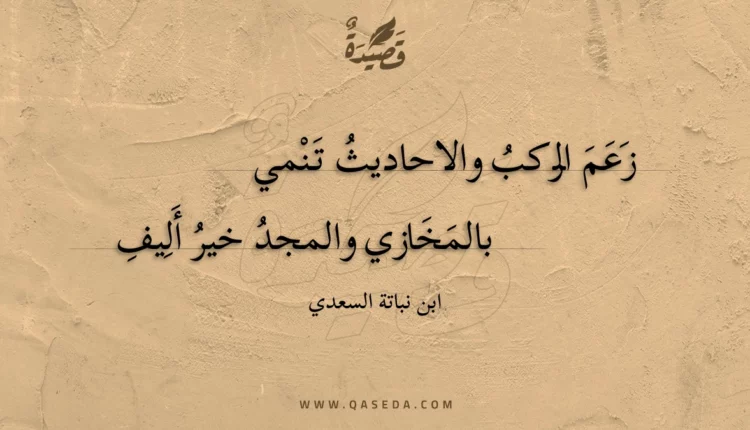 قَصِيْدَةٌ
زَعَمَ الركبُ والاحاديثُ تَنْمي
بالمَخَازي والمجدُ خيرُ أَلِيفِ
ابن نباتة السعدي
WWW.QASEDA.COM